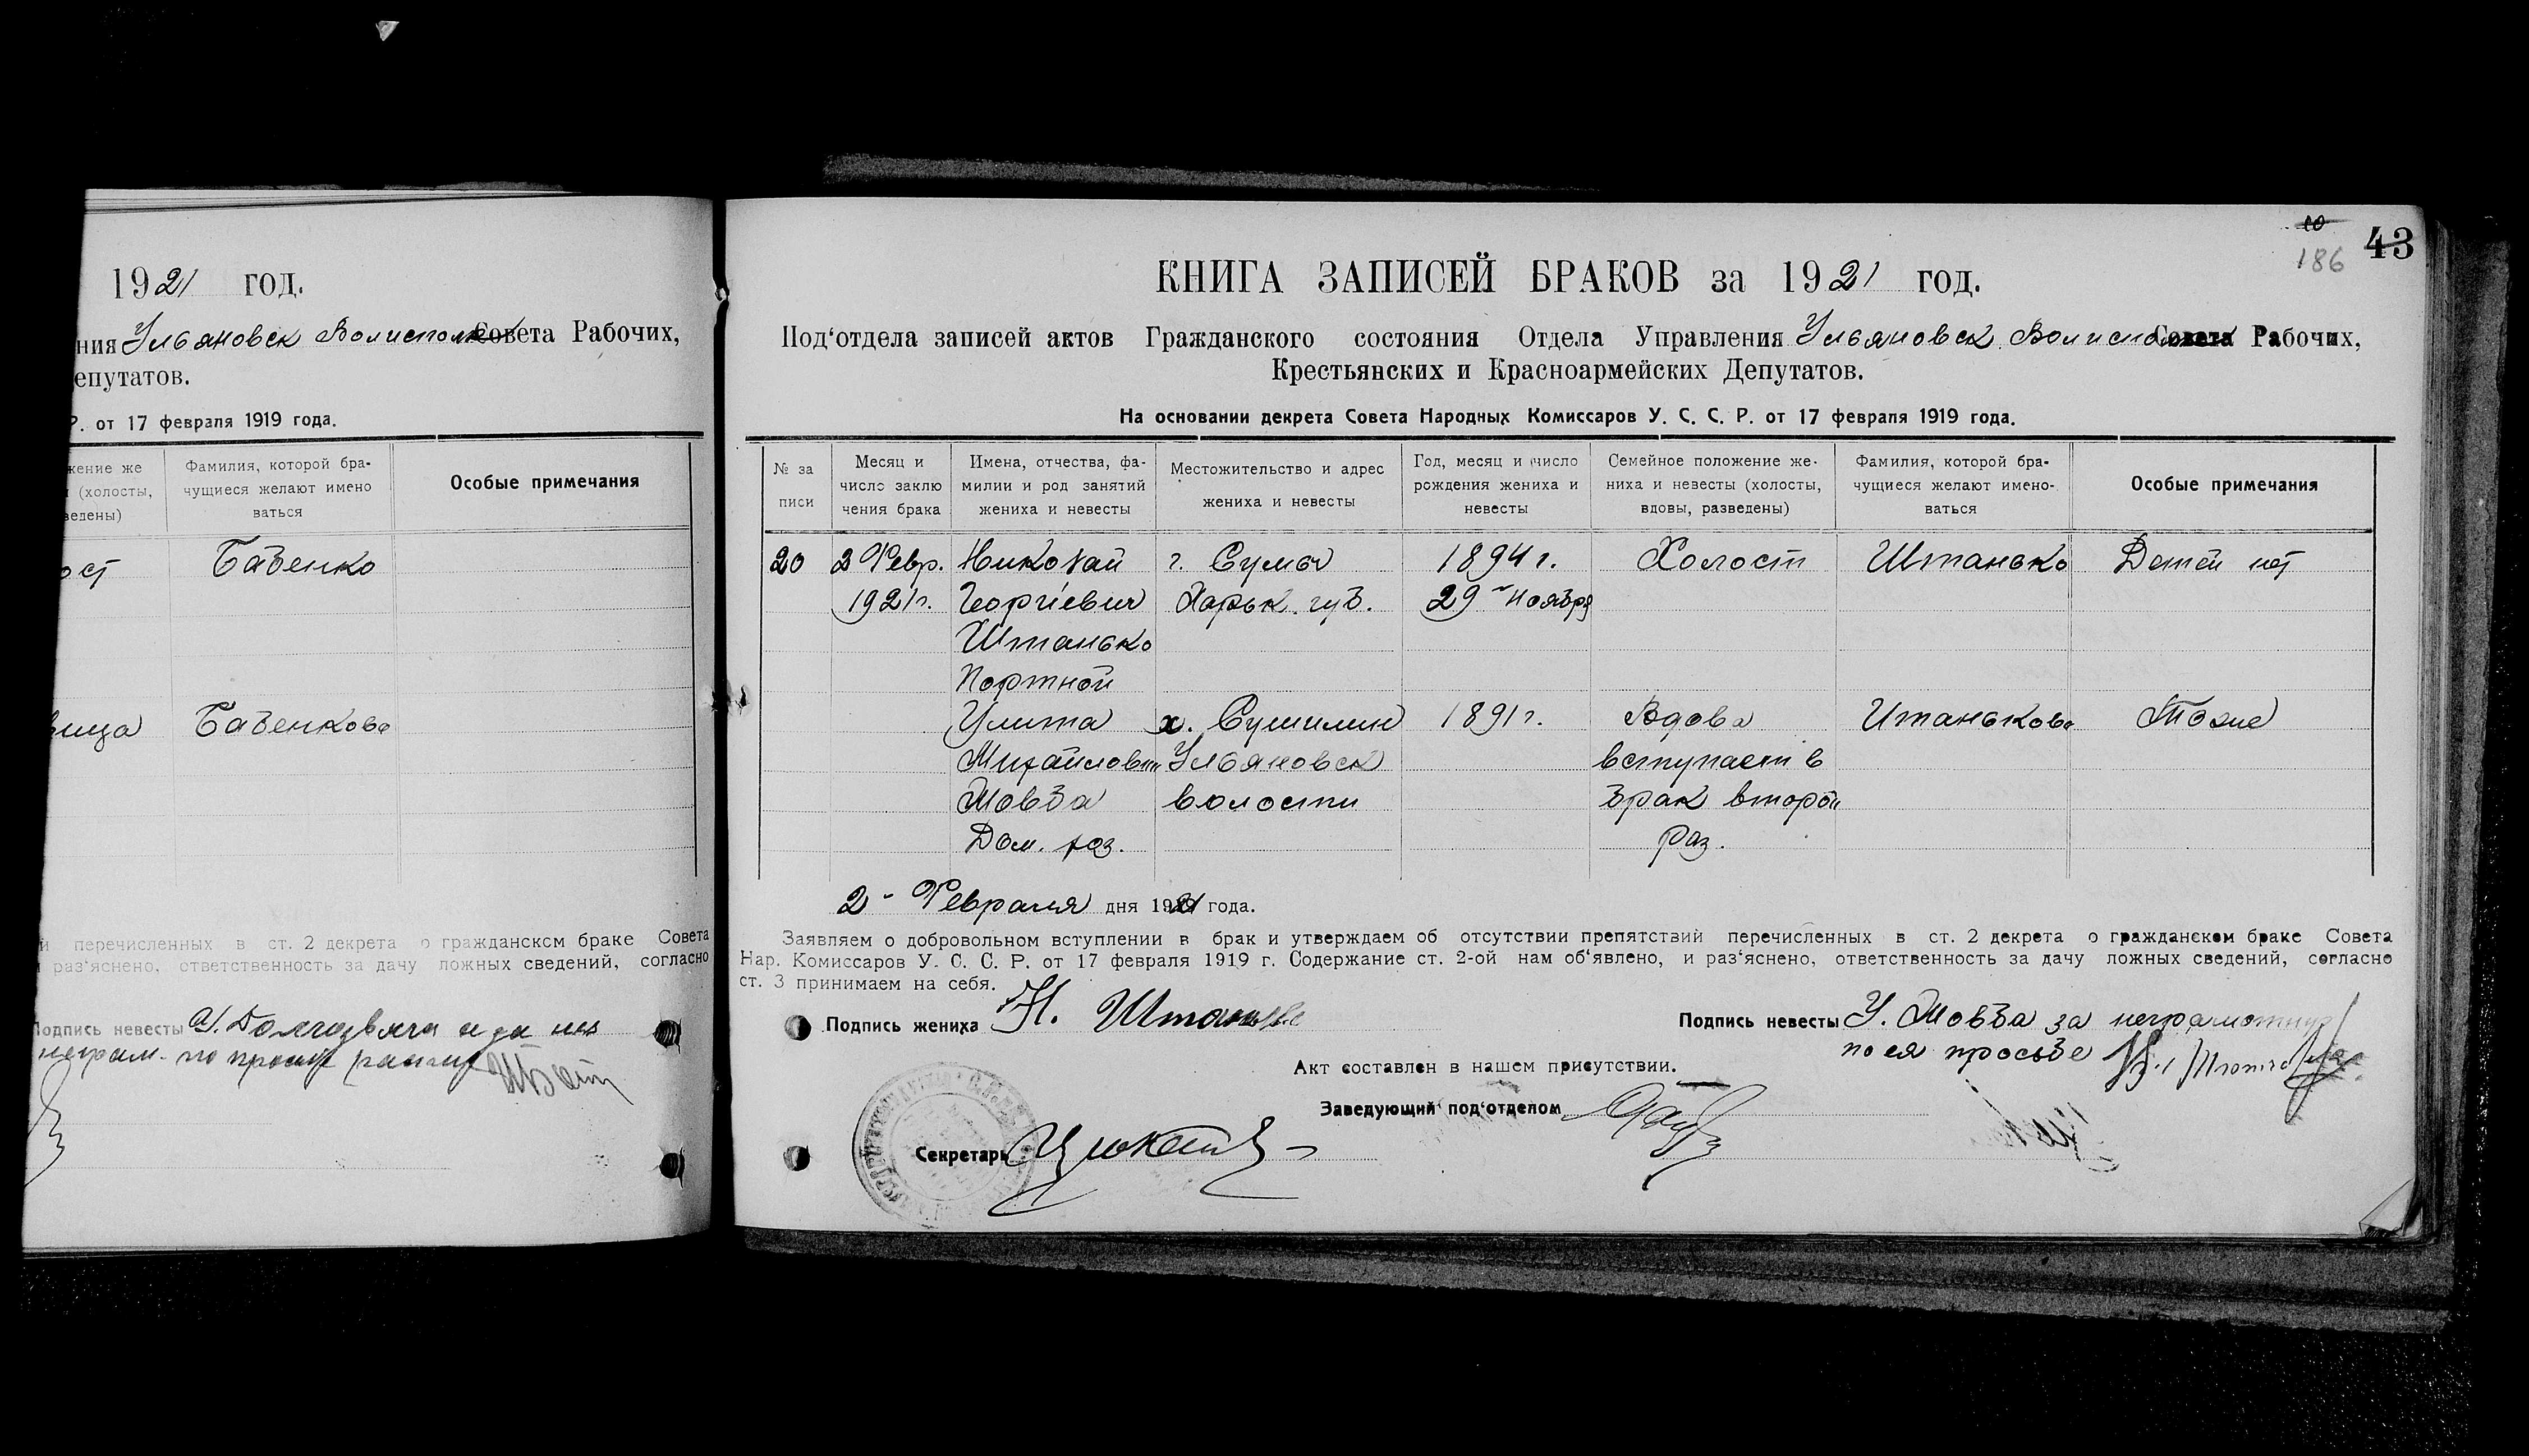 1921 год.
ния Ульяновск Волисполк Совета Рабочих,
епутатов.
Р. от 17 февраля 1919 года.
жение же
(холосты,
ведены)
Фамилия, которой бра-
чущиеся желают имено
ваться
Особые примечания
ост Бабенко
вица Бабенкова
й перечисленных в ст. 2 декрета о гражданском браке Совета
и раз‘яснено, ответственность за дачу ложных сведений, согласно
Подпись невесты
неграм. по
20
186
43
КНИГА ЗАПИСЕЙ БРАКОВ за 1921 год.
Под‘отдела записей актов Гражданского состояния Отдела Управления Ульяновск Волисполк Совета Рабочих,
Крестьянских и Красноармейских Депутатов.
На основании декрета Совета Народных Комиссаров У. С. С. Р. от 17 февраля 1919 года.
№ за
писи
Месяц и
число заклю
чения брака
Имена, отчества, фа-
милии и род занятий
жениха и невесты
Местожительство и адрес
жениха и невесты
Год, месяц и число
рождения жениха и
невесты
Семейное положение же-
ниха и невесты (холосты,
вдовы, разведены)
Фамилия, которой бра-
чущиеся желают имено-
ваться
Особые примечания
20 2 Февр. Николай г. Сумы 1894 г. Холост Штанько Детей нет
1921 г. Георгіевич Харьк. губ. 29 Ноября
Штанько
Портной
Улита х. Сушилин 1891 г. Вдова Штанькова Тоже
Михайловн Ульяновск вступает в
Мовба волости брак второй
Дом. хоз. раз.
2 - Февраля дня 1921 года.
Заявляем о добровольном вступлении в брак и утверждаем об отсутствии препятствий перечисленных в ст. 2 декрета о гражданском браке Совета
Нар. Комиссаров У. С. С. Р. от 17 февраля 1919 г. Содержание ст. 2-ой нам об‘явлено, и раз‘яснено, ответственность за дачу ложных сведений, согласно
ст. 3 принимаем на себя.
Подпись жениха Н. Штанько
Подпись невесты У. Мовба за неграмотную
по ея просьбе
Акт составлен в нашем присутствии.
Заведующий под‘отделом
Секретарь